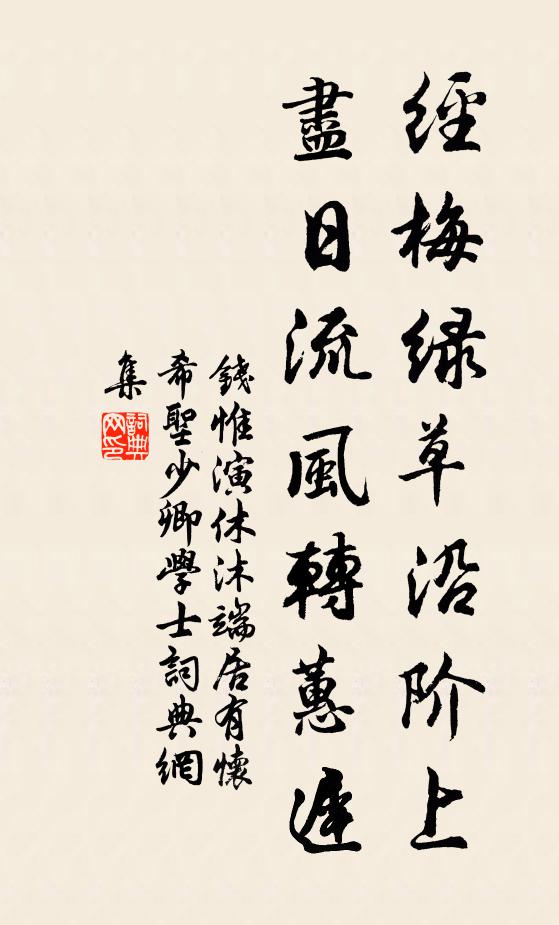 經梅绿草沿阶上
盡日流風轉蕙遲
錢惟演休沐端居有懷
希聖少卿學士詞典網
集
詞典
网印